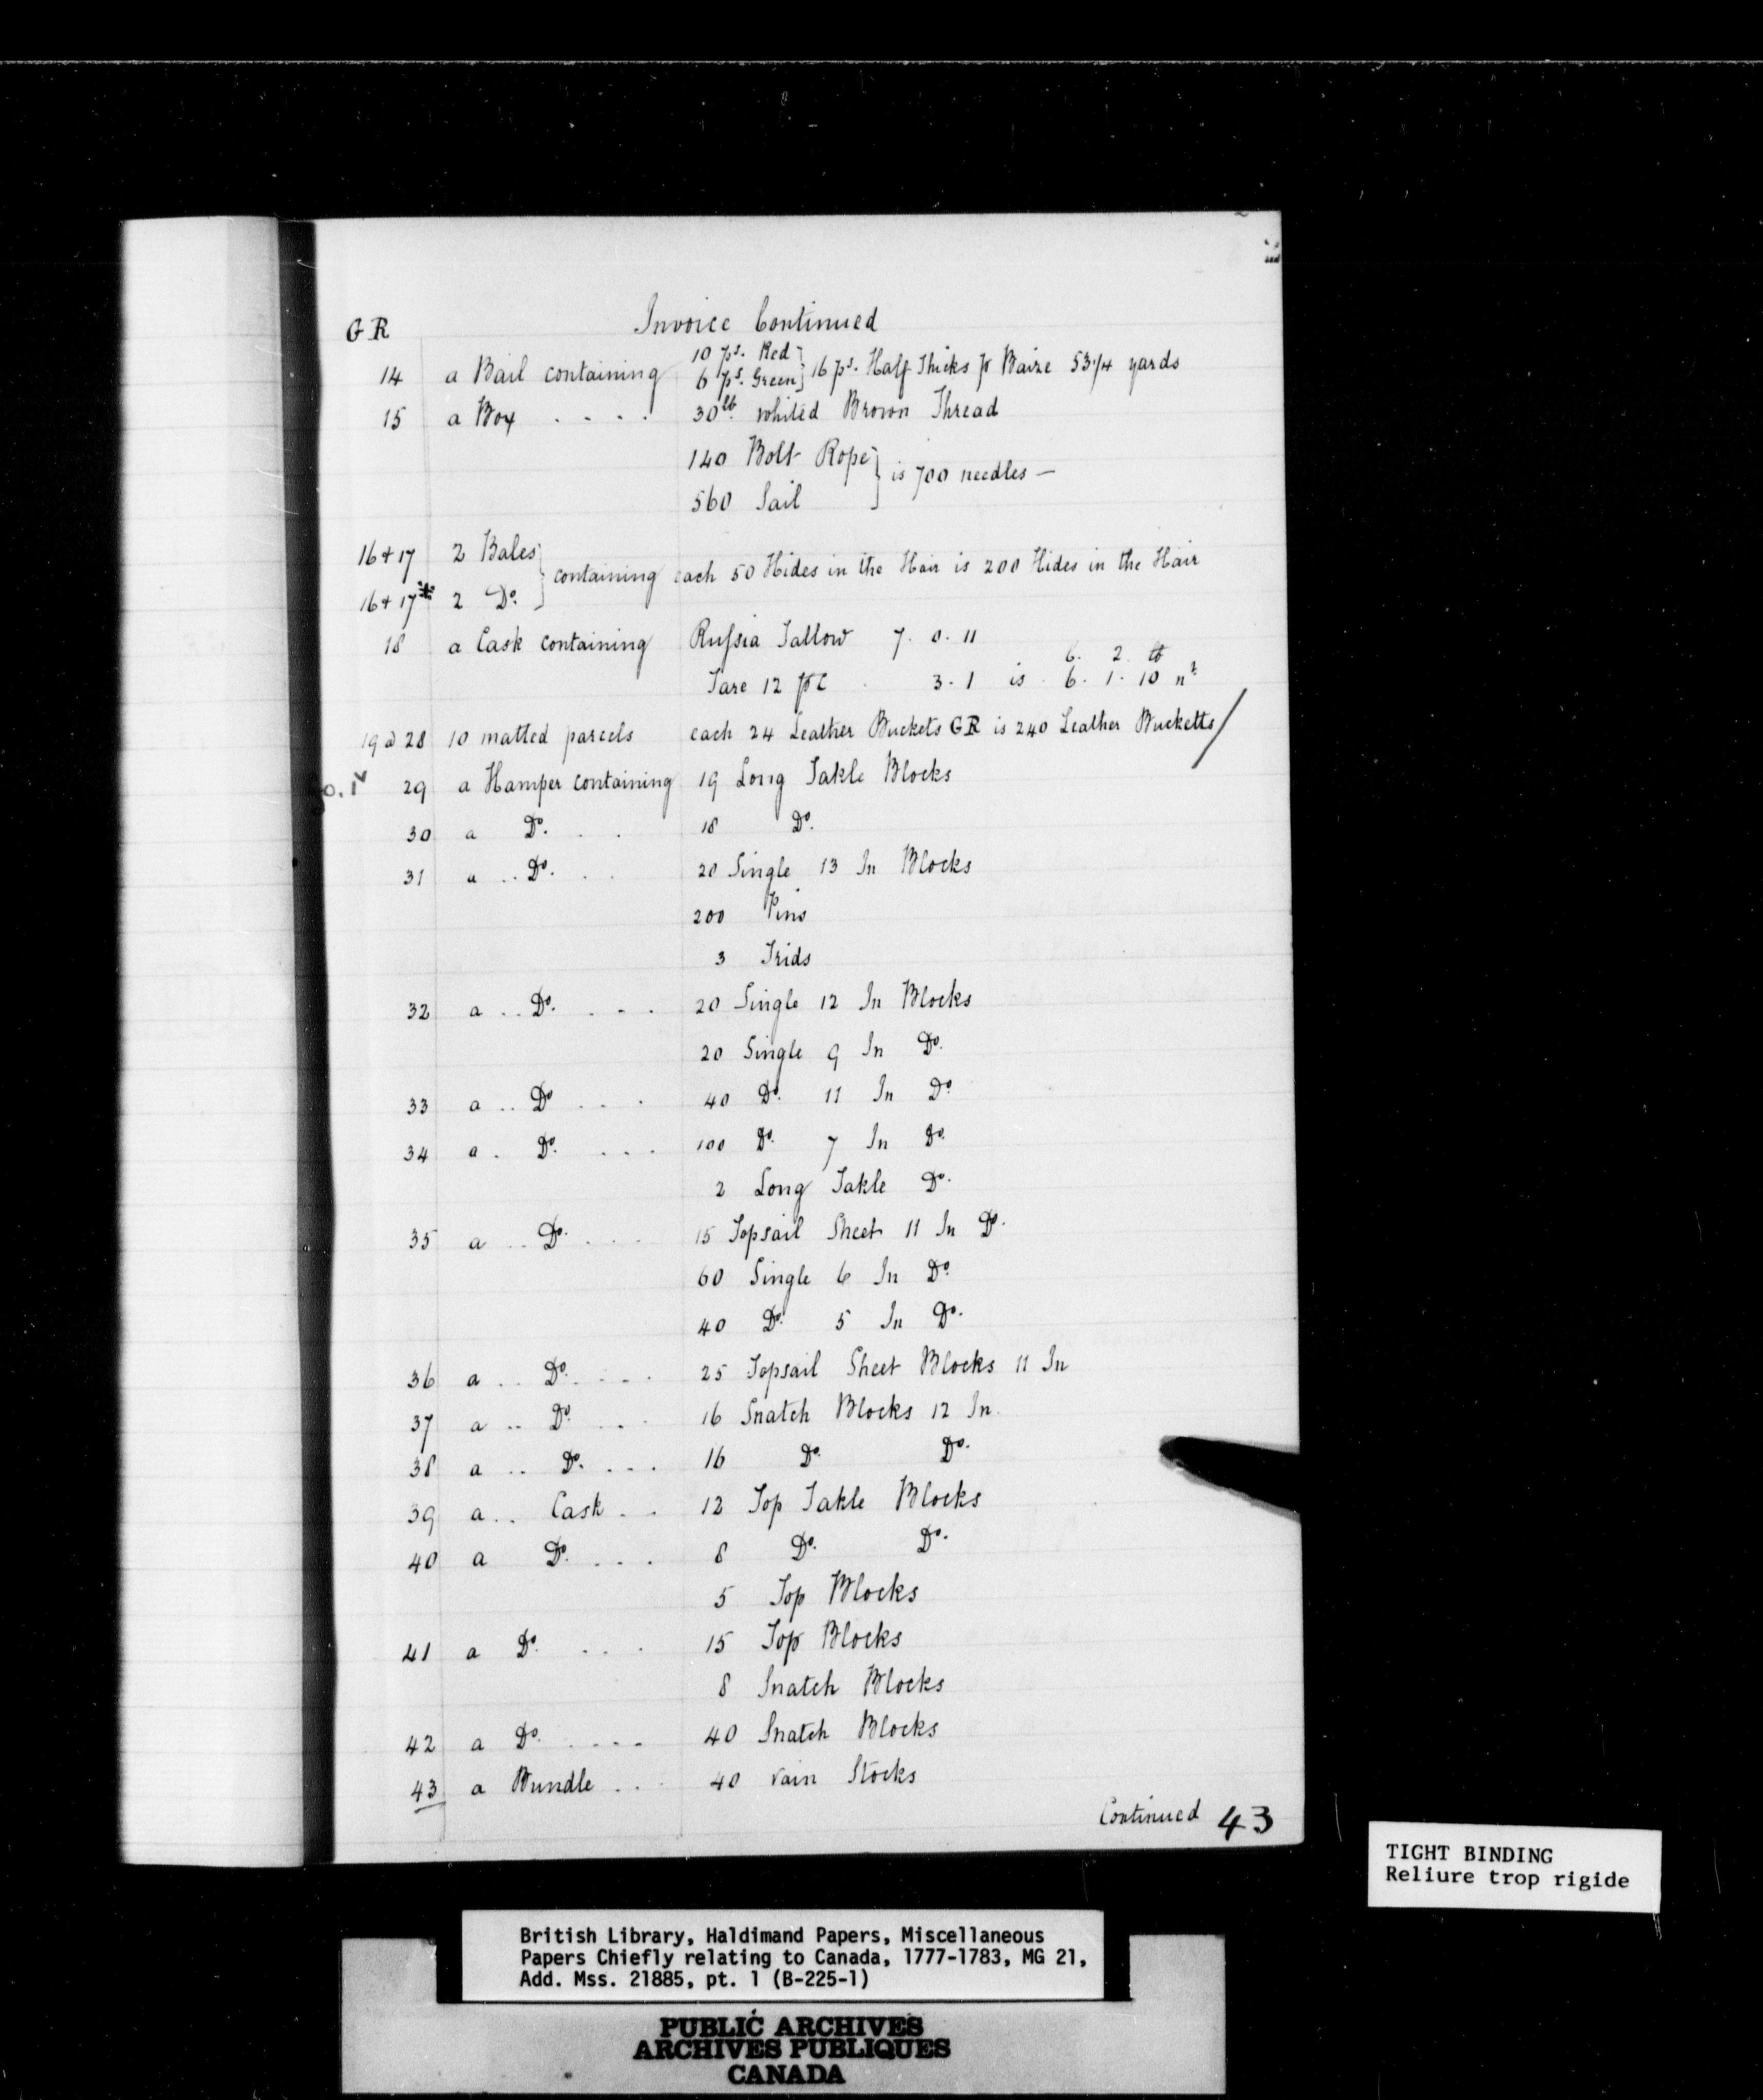 Invoice Continued
GR
10 ps. Red
14 a Bail containing 6 ps. Green } 16 ps. Half Thicks pr Baize 53 1/4 yards
15 a Box . . . . 30lb. whited Brown Thread
140 Bolt Rope } is 700 needles —
560 Sail
16 & 17 2 Bales } containing each 50 Hides in the Hair is 200 Hides in the Hair
16 & 17* 2 Do.
18 a Cask containing Russia Tallow 7. 0. 11
C. 2. lb
Tare 12 pC . 3. 1 is . 6. 1. 10 nt
19 a 28 10 matted parcels each 24 Leather Buckets GR is 240 Leather Bucketts/
29 a Hamper containing 19 Long Takle Blocks
30 a Do. . . 18 Do.
31 a .. Do. . . 20 Single 13 In Blocks
200 Pins
3 Trids
32 a .. Do. . . . 20 Single 12 In Blocks
20 Single 9 In Do.
33 a .. Do . . . 40 Do. 11 In Do.
34 a . Do. . . . 100 Do. 7 In Do.
2 Long Takle Do.
35 a .. Do. . . . 15 Topsail Sheet 11 In Do.
60 Single 6 In Do.
40 Do. 5 In Do.
36 a .. Do. . . . 25 Topsail Sheet Blocks 11 In
37 a .. Do. . . . 16 Snatch Blocks 12 In.
38 a .. Do. . . . 16 Do. Do.
39 a .. Cask . . 12 Top Takle Blocks
40 a Do. . . . 8 Do. Do.
5 Top Blocks
41 a Do. . . . 15 Top Blocks
8 Snatch Blocks
42 a Do. . . . . 40 Snatch Blocks
43 a Bundle . . . 40 vain Stocks
Continued 43
TIGHT BINDING
Reliure trop rigide
British Library, Haldimand Papers, Miscellaneous
Papers Chiefly relating to Canada, 1777-1783, MG 21,
Add. Mss. 21885, pt. 1 (B-225-1)
PUBLIC ARCHIVES
ARCHIVES PUBLIQUES
CANADA